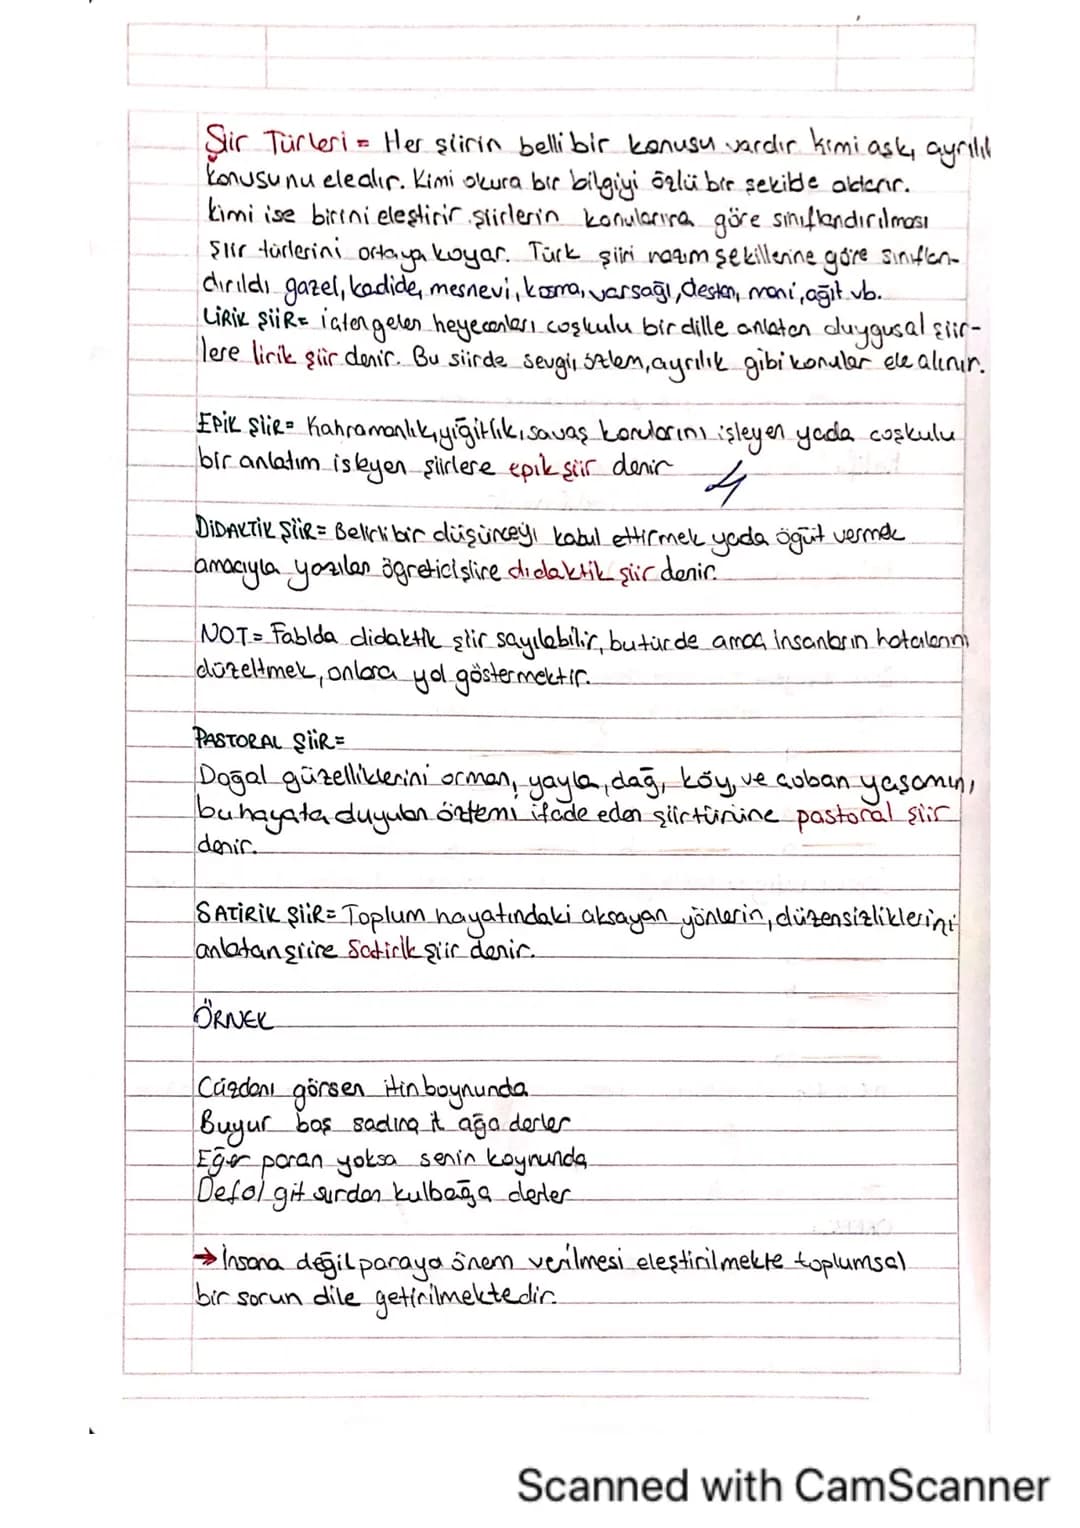 Şiir Türleri = Her şiirin belli bir konusu vardır kimi aşkı, ayrılık
konusunu ele alır. Kimi okura bir bilgiyi özlü bir şekilde aktarır.
kimi ise birini eleştirir şiirlerin konularına göre sınıflandırılması
şiir türlerini ortaya koyar. Türk şiiri nazım şekillerine göre sınıflan-
dırıldı gazel, kadide, mesnevi, koşma, varsağı, destan, mani, ağıt vb.
LİRİK ŞİİR= içten gelen heyecanları coşkulu bir dille anlatan duygusal şiir-
lere lirik şiir denir. Bu şiirde sevgi, özlem, ayrılık gibi konular ele alınır.
EPİK ŞİİR= Kahramanlık, yiğitlik, savaş konularını işleyen yada coşkulu
bir anlatım isteyen şiirlere epik şiir denir
DİDAKTİK ŞİİR= Belirli bir düşünceyi kabul ettirmek yada öğüt vermek
amacıyla yazılan öğretici şiire didaktik şiir denir.
NOT= Fablda didaktik şiir sayılabilir, bu türde amaç insanların hatalarını
düzeltmek, onlara yol göstermektir.
PASTORAL ŞİİR=
Doğal güzelliklerini orman, yayla, dağ, köy, ve çoban yaşamını,
bu hayata duyulan özlemi ifade eden şiir türüne pastoral şiir
denir.
SATİRİK ŞİİR= Toplum hayatındaki aksayan yönlerin, düzensizliklerini
anlatan şiire Satirik şiir denir.
ÖRNEK
Cüzdanı görsen itin boynunda
Buyur baş sadına it ağa derler
Eğer paran yoksa senin koynunda
Defol git şurdan kulbağa derler
→ İnsana değil paraya önem verilmesi eleştirilmekte toplumsal
bir sorun dile getirilmektedir.
Scanned with CamScanner